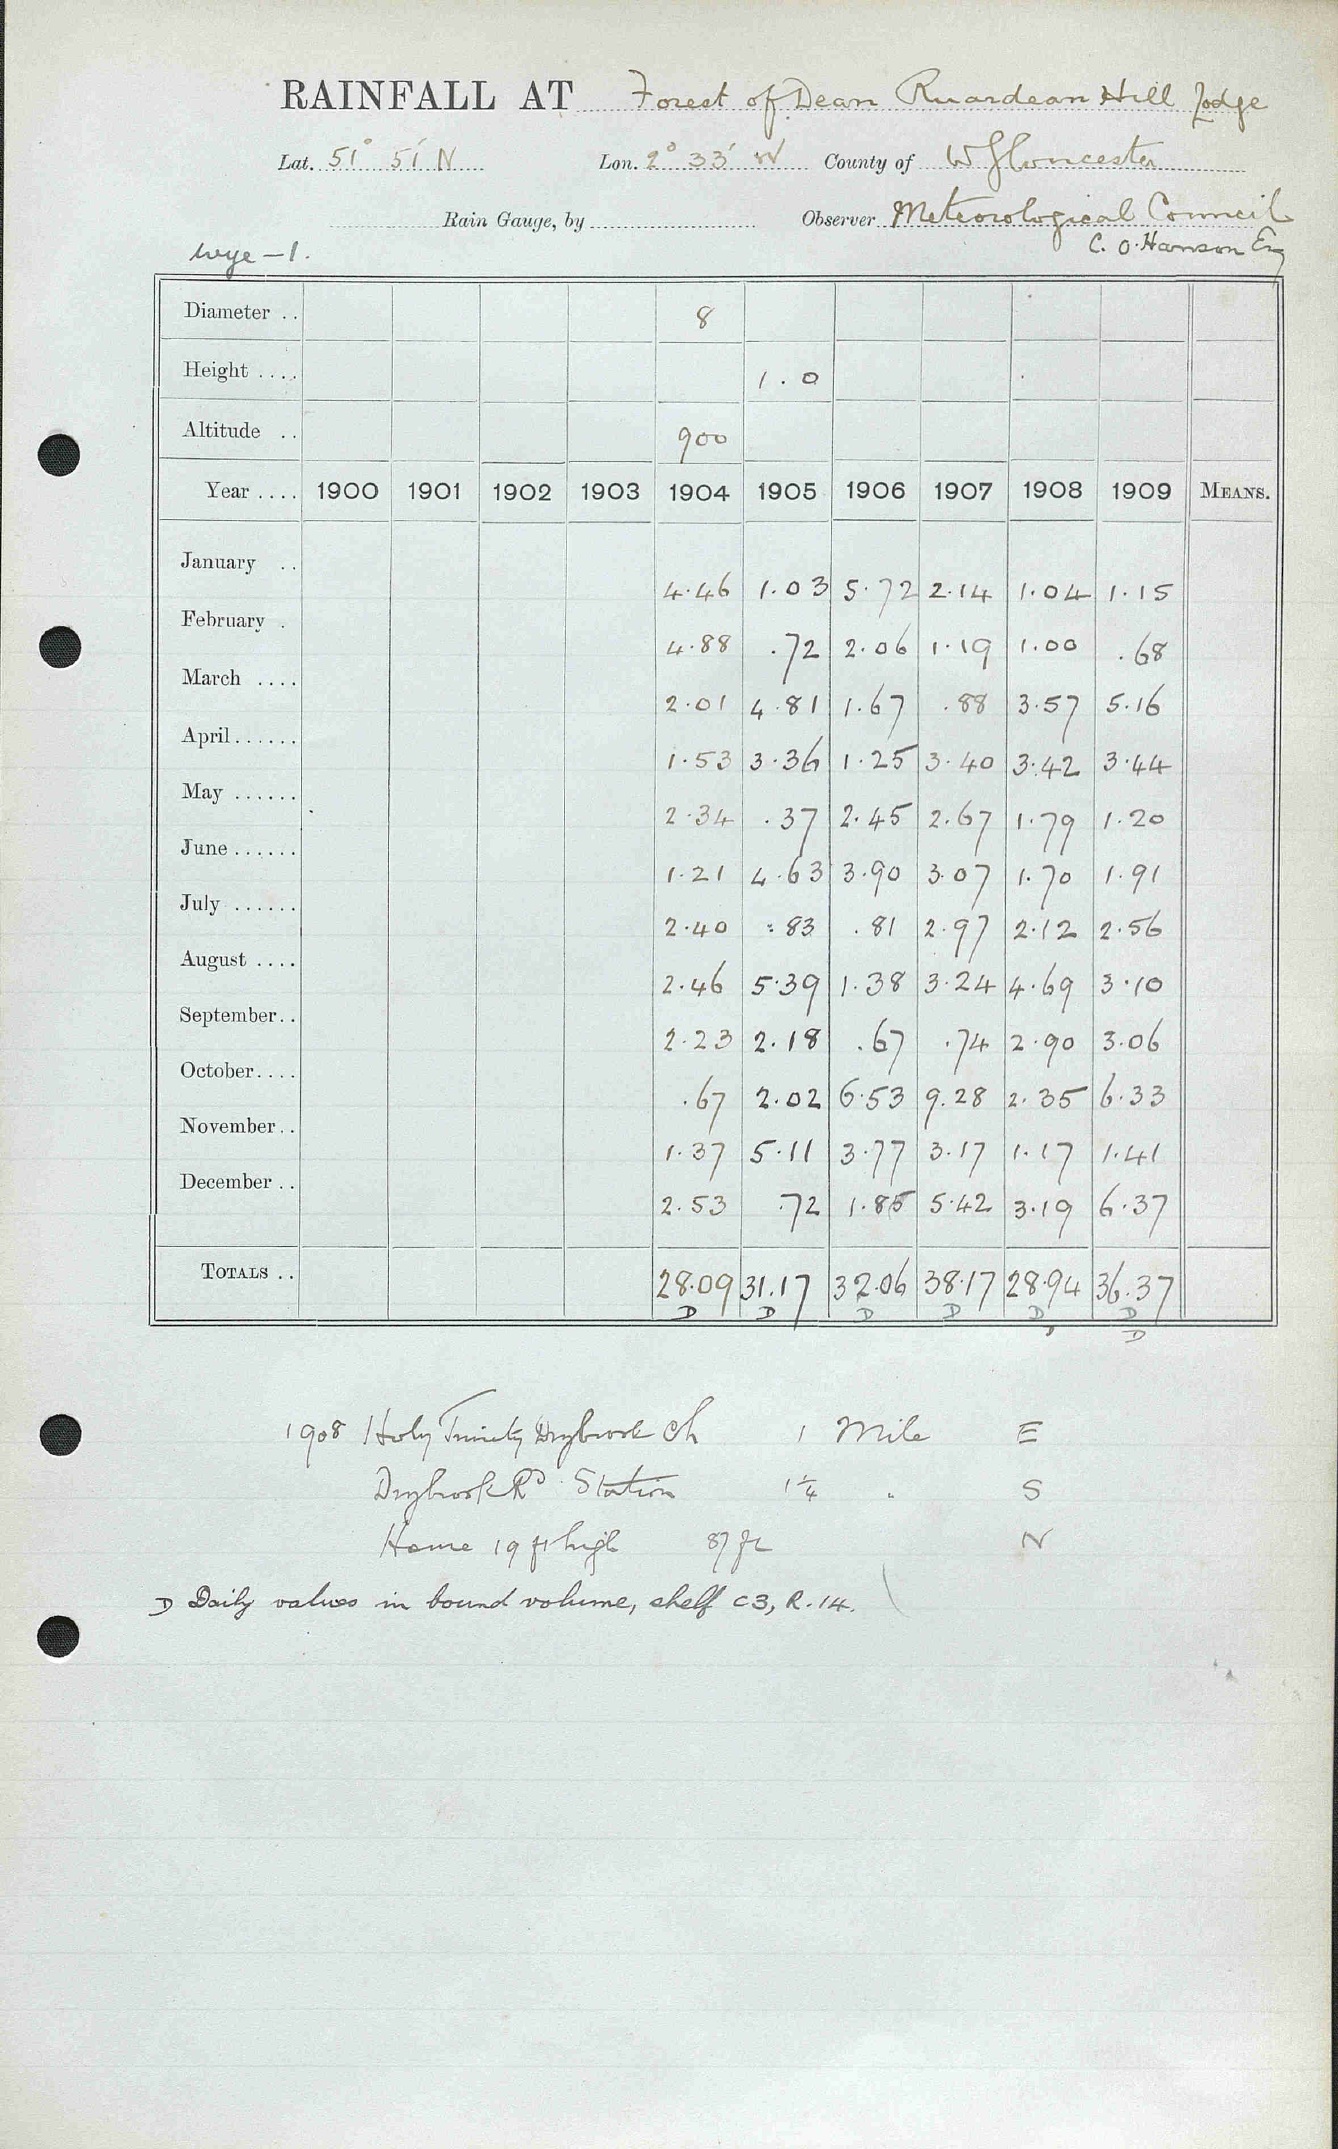 RAINFALL AT Forest of Dean Ruardean Hill Lodge
Lat. 51° 51' N Lon. 2° 33' W County of W Gloucester
Rain Gauge, by Observer Meteorological Council
Wye - 1. C. O. Hanson Esq
Diameter .. 8
Height .... 1.0
Altitude .. 900
Year .... 1900 1901 1902 1903 1904 1905 1906 1907 1908 1909 MEANS.
January .. 4.46 1.03 5.72 2.14 1.04 1.15
February . 4.88 .72 2.06 1.19 1.00 .68
March .... 2.01 4.81 1.67 .88 3.57 5.16
April...... 1.53 3.36 1.25 3.40 3.42 3.44
May ...... 2.34 .37 2.45 2.67 1.79 1.20
June...... 1.21 4.63 3.90 3.07 1.70 1.91
July ...... 2.40 .83 .81 2.97 2.12 2.56
August .... 2.46 5.39 1.38 3.24 4.69 3.10
September.. 2.23 2.18 .67 .74 2.90 3.06
October.... .67 2.02 6.53 9.28 2.35 6.33
November.. 1.37 5.11 3.77 3.17 1.17 1.41
December .. 2.53 .72 1.85 5.42 3.19 6.37
TOTALS .. 28.09 31.17 32.06 38.17 28.94 36.37
D D D D D D
D
1908 Holy Trinity Drybrook Ch 1 Mile E
Drybrook Rd Station 1¼ " S
Home 19 ft high 87 ft N
D Daily values in bound volume, shelf C3, R.14.